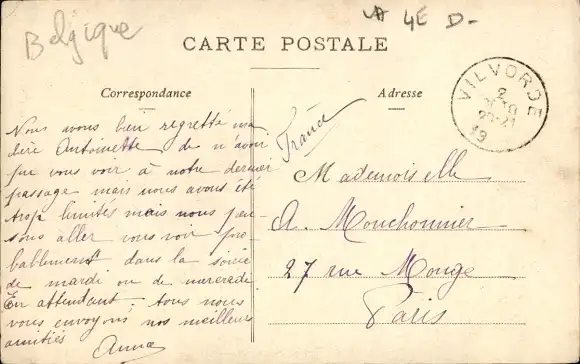 Belgique
4E D-
CARTE POSTALE
Correspondance
Adresse
VILVORDE
2
20-21
Nous avons bien regretté ma
chère Antoinette de n'avoir
pu vous voir à notre dernier
passage mais nous avons été
trop limités mais nous pen-
sons aller vous voir pro-
bablement dans la soirée
de mardi ou de mercredi
En attendant - tous nous
vous envoyons nos meilleurs
amitiés
Anna
France
Mademoiselle
A. Mouchonnier
27 rue Monge
Paris